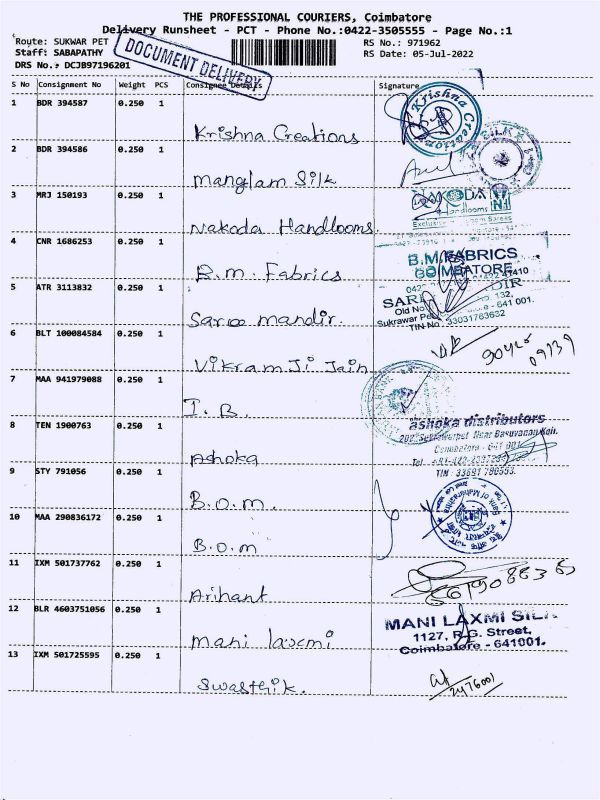 THE PROFESSIONAL COURIERS, Coimbatore
Delivery Runsheet - PCT - Phone No.:0422-3505555 - Page No.:1
Route: SUKWAR PET
RS No.: 971962
Staff: SABAPATHY
RS Date: 05-Jul-2022
DRS No.: DCJB97196201
DOCUMENT DELIVERY
S No Consignment No Weight PCS Consignee Details Signature
1 BDR 394587 0.250 1
Krishna Creations
Krishna Creations
2 BDR 394586 0.250 1
Manglam Silk
SILK
3 MRJ 150193 0.250 1
Nakoda Handlooms.
NAKODA N1
Handlooms
4 CNR 1686253 0.250 1
B.M. Fabrics
B.M.FABRICS
COIMBATORE
5 ATR 3113832 0.250 1
Saree mandir.
132,
Old No
Sukrawar Pe - 641 001.
TIN No. 33031763632
6 BLT 100084584 0.250 1
Vikram Ji Jain
7 MAA 941979088 0.250 1
I. B.
8 TEN 1900763 0.250 1
Ashoka
ashoka distributors
Coimbatore - 641 001
9 STY 791056 0.250 1
B.O.M.
Bank of Maharashtra
10 MAA 290836172 0.250 1
B.O.M
11 IXM 501737762 0.250 1
Arihant
12 BLR 4603751056 0.250 1
Mani laxmi
MANI LAXMI SILK
1127, R.G. Street,
Coimbatore - 641001.
13 IXM 501725595 0.250 1
Swasthik.
2476001